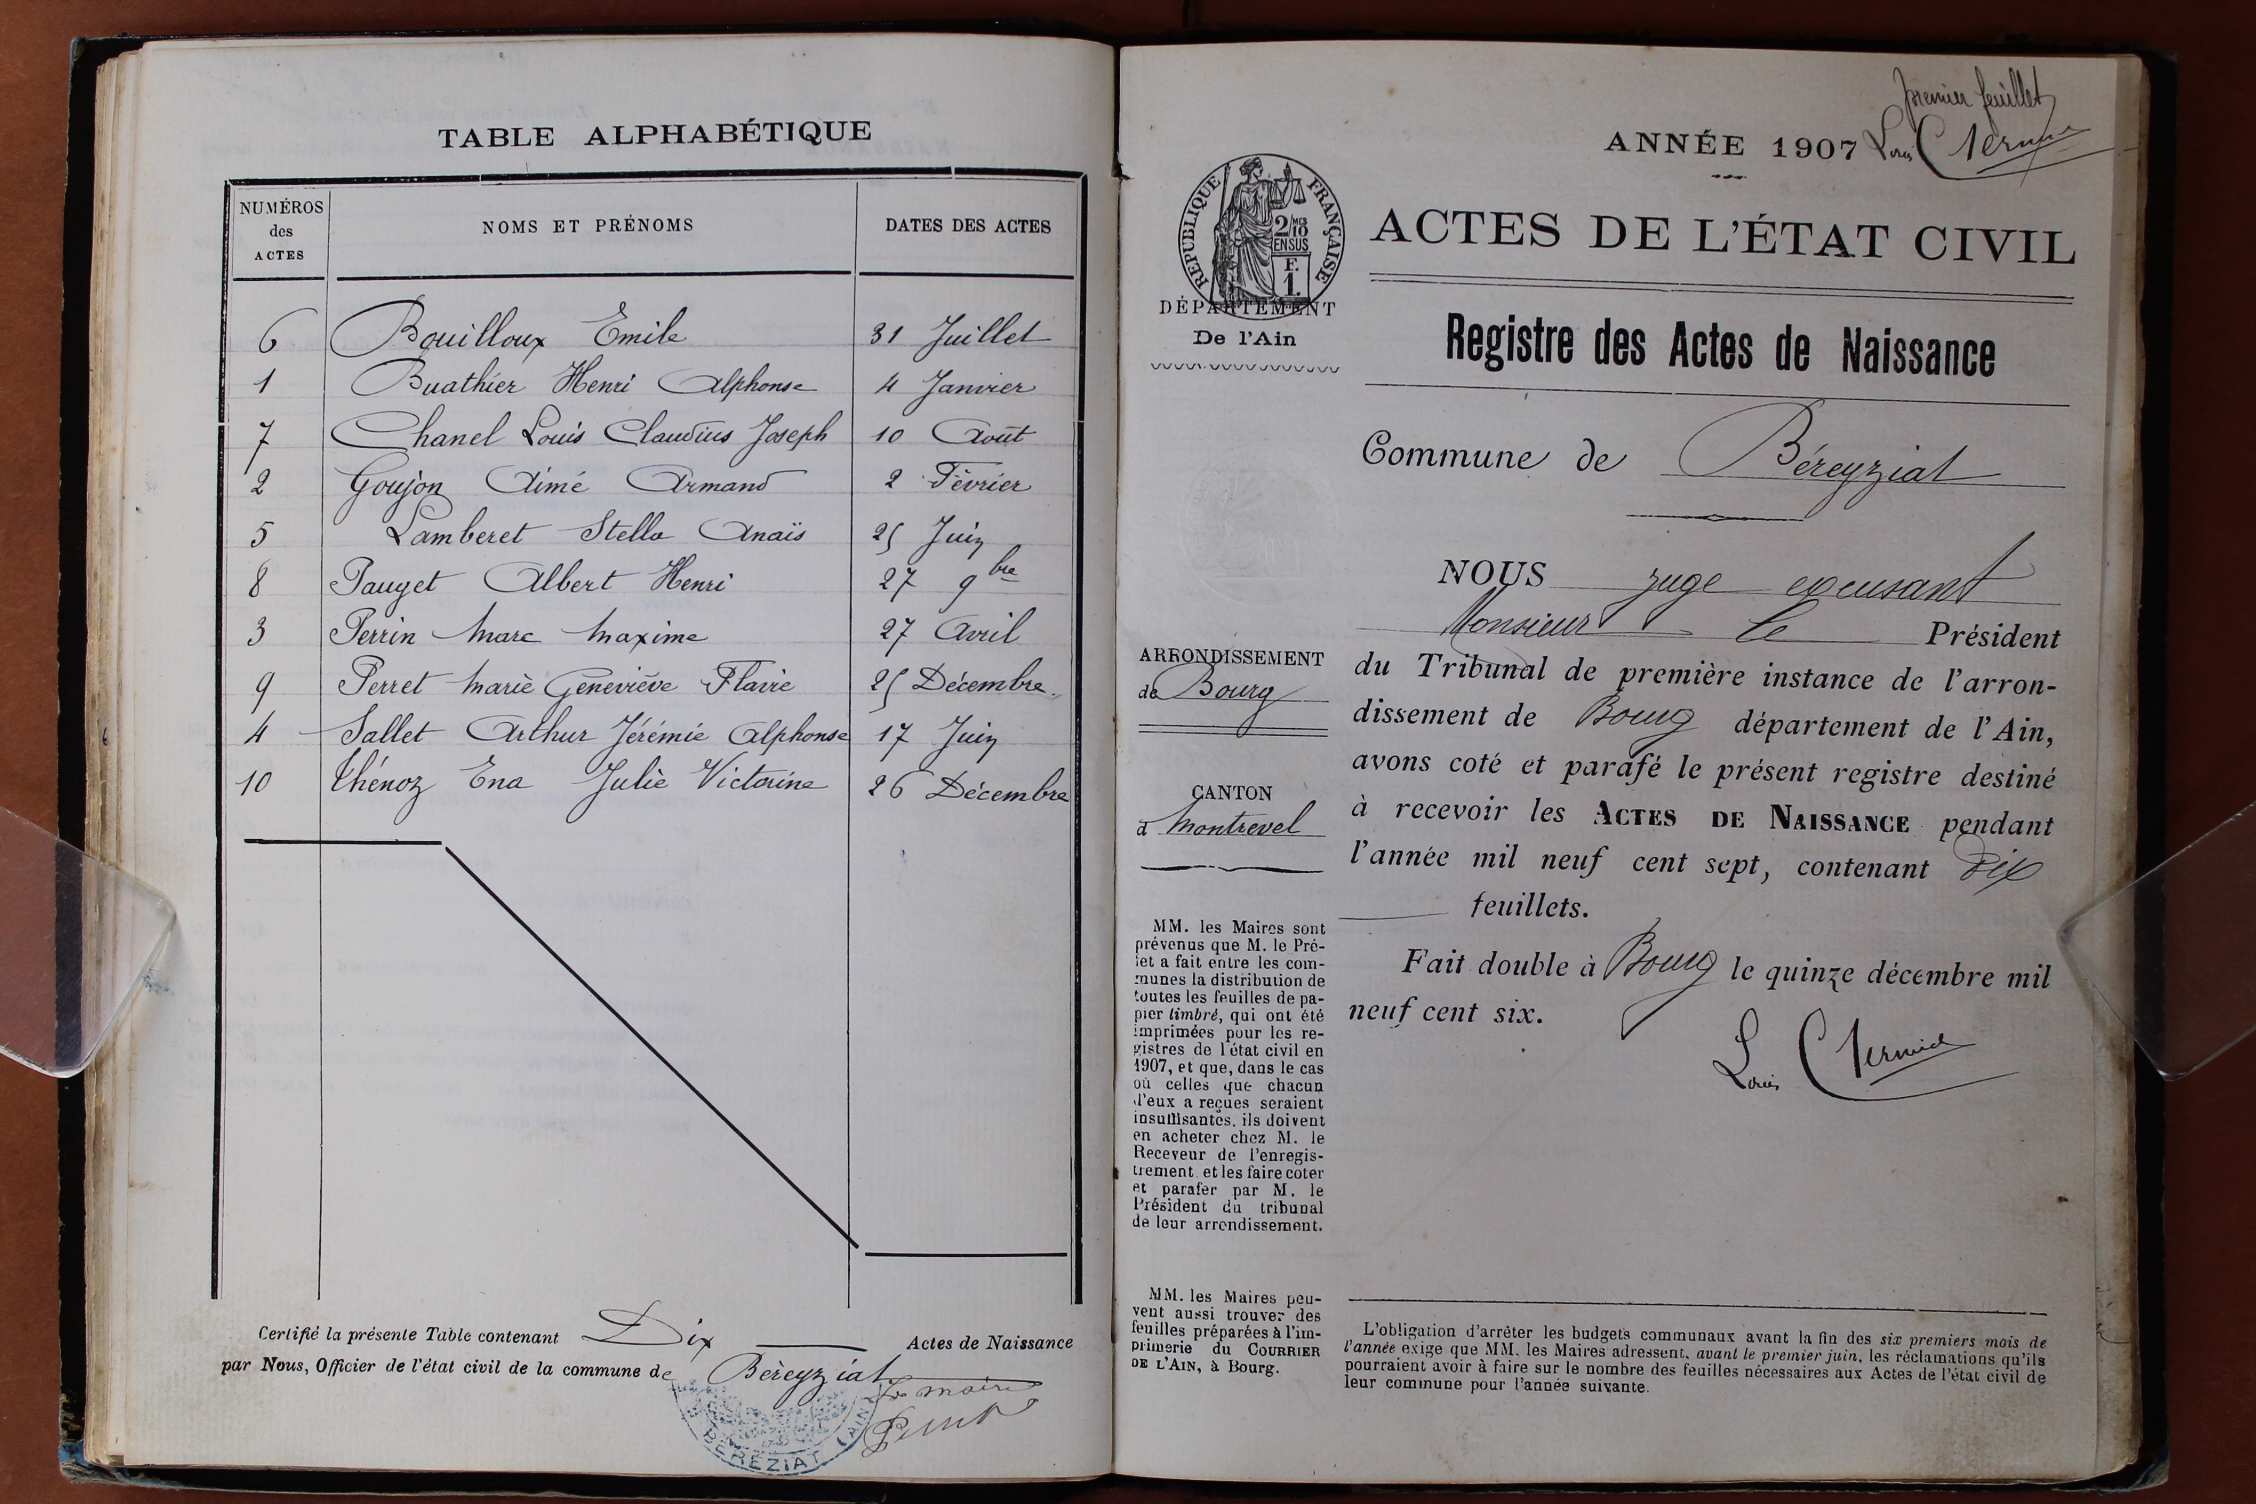 TABLE ALPHABÉTIQUE
NUMÉROS des ACTES
NOMS ET PRÉNOMS
DATES DES ACTES
6 Bouilloux Emile 31 Juillet
1 Buathier Henri Alphonse 4 Janvier
7 Chanel Louis Claudius Joseph 10 Août
2 Goujon Aimé Armand 2 Février
5 Lamberet Stella Anaïs 25 Juin
8 Pauget Albert Henri 27 9bre
3 Perrin Marc Maxime 27 Avril
9 Perret Marie Geneviève Flavie 25 Décembre
4 Sallet Arthur Jérémie Alphonse 17 Juin
10 Thénoz Ena Julie Victorine 26 Décembre
Certifié la présente Table contenant Dix Actes de Naissance
par Nous, Officier de l'état civil de la commune de Béreyziat
Le maire
BÉRÉZIAT (AIN)
premier feuillet
ANNÉE 1907 Louis
RÉPUBLIQUE FRANÇAISE
2/10 MES
EN SUS
F.
1.
DÉPARTEMENT
De l'Ain
ACTES DE L'ÉTAT CIVIL
Registre des Actes de Naissance
Commune de Béreyziat
NOUS juge excusant
Monsieur le Président
du Tribunal de première instance de l'arron-
dissement de Bourg département de l'Ain,
avons coté et parafé le présent registre destiné
à recevoir les ACTES DE NAISSANCE pendant
l'année mil neuf cent sept, contenant dix
feuillets.
Fait double à Bourg le quinze décembre mil
neuf cent six.
Louis
ARRONDISSEMENT
de Bourg
CANTON
d Montrevel
MM. les Maires sont
prévenus que M. le Pré-
fet a fait entre les com-
munes la distribution de
toutes les feuilles de pa-
pier timbré, qui ont été
imprimées pour les re-
gistres de l'état civil en
1907, et que, dans le cas
où celles que chacun
d'eux a reçues seraient
insuffisantes, ils doivent
en acheter chez M. le
Receveur de l'enregis-
trement et les faire coter
et parafer par M. le
Président du tribunal
de leur arrondissement.
MM. les Maires peu-
vent aussi trouver des
feuilles préparées à l'im-
primerie du COURRIER
DE L'AIN, à Bourg.
L'obligation d'arrêter les budgets communaux avant la fin des six premiers mois de
l'année exige que MM. les Maires adressent, avant le premier juin, les réclamations qu'ils
pourraient avoir à faire sur le nombre des feuilles nécessaires aux Actes de l'état civil de
leur commune pour l'année suivante.